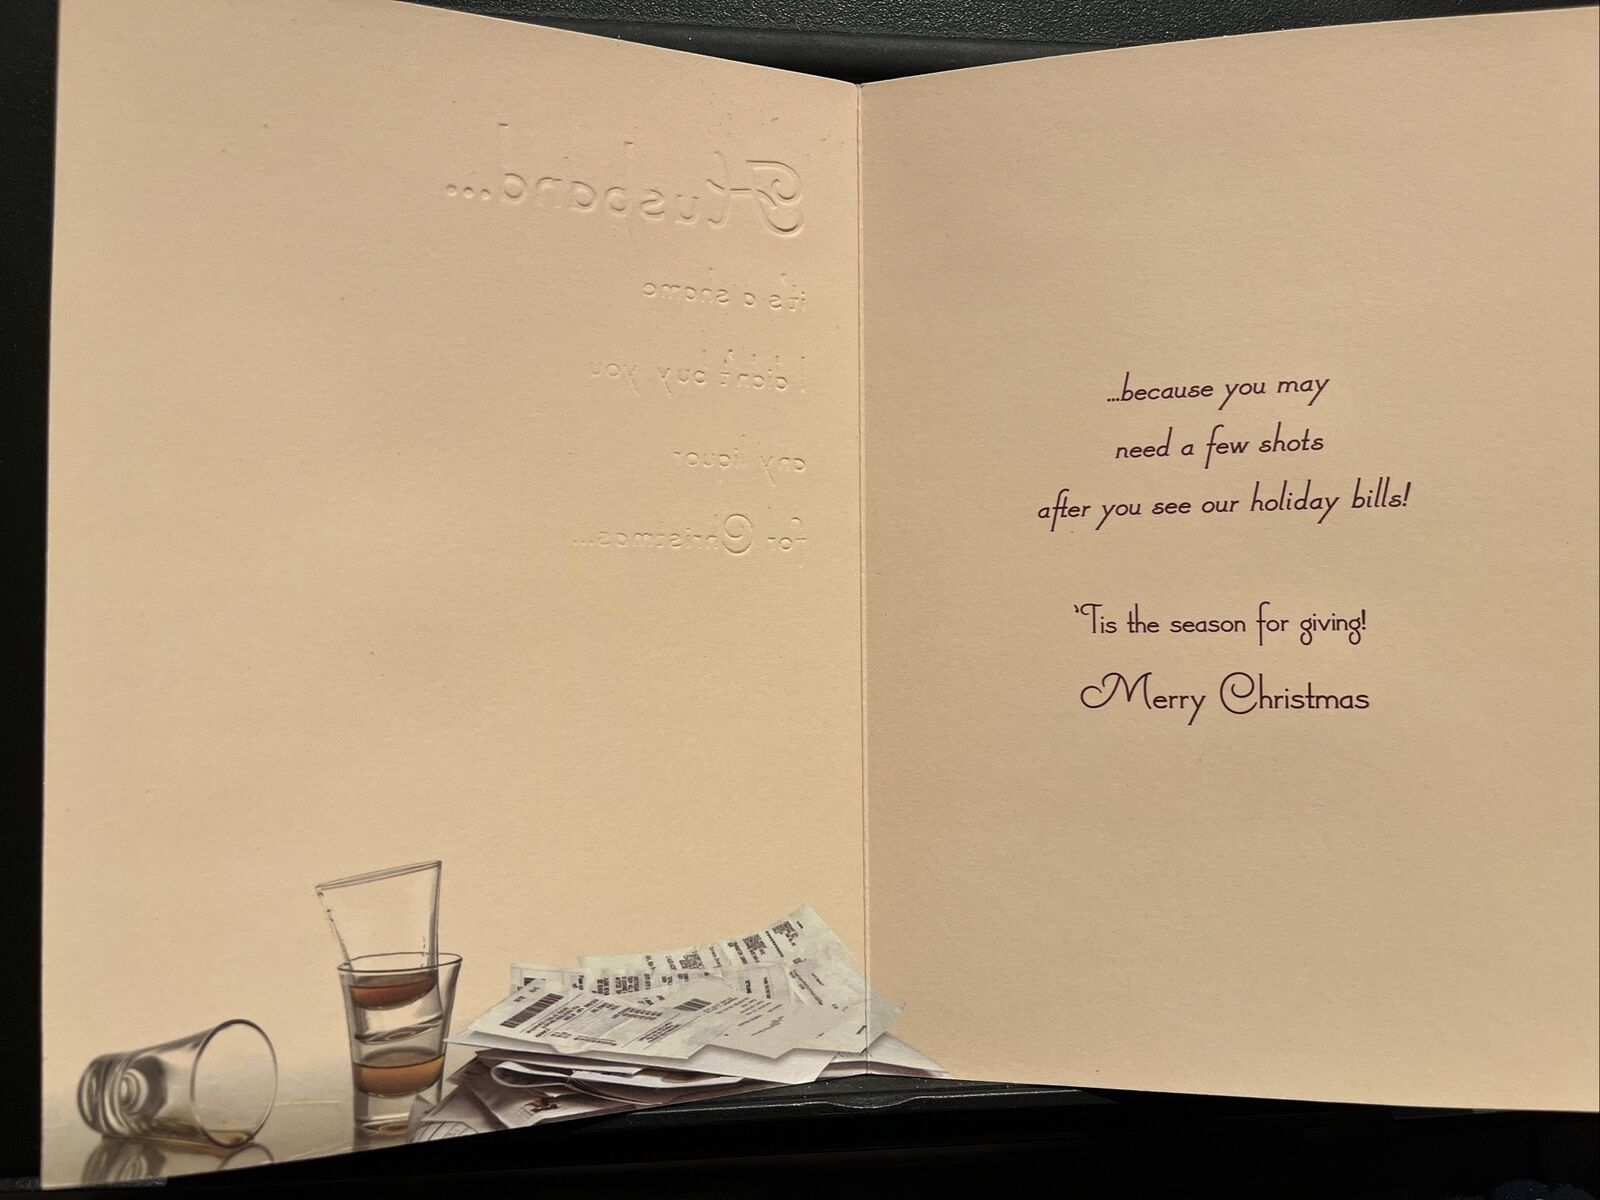 Husband...
it's a shame
I didn't buy you
any liquor
for Christmas...
...because you may
need a few shots
after you see our holiday bills!
'Tis the season for giving!
Merry Christmas